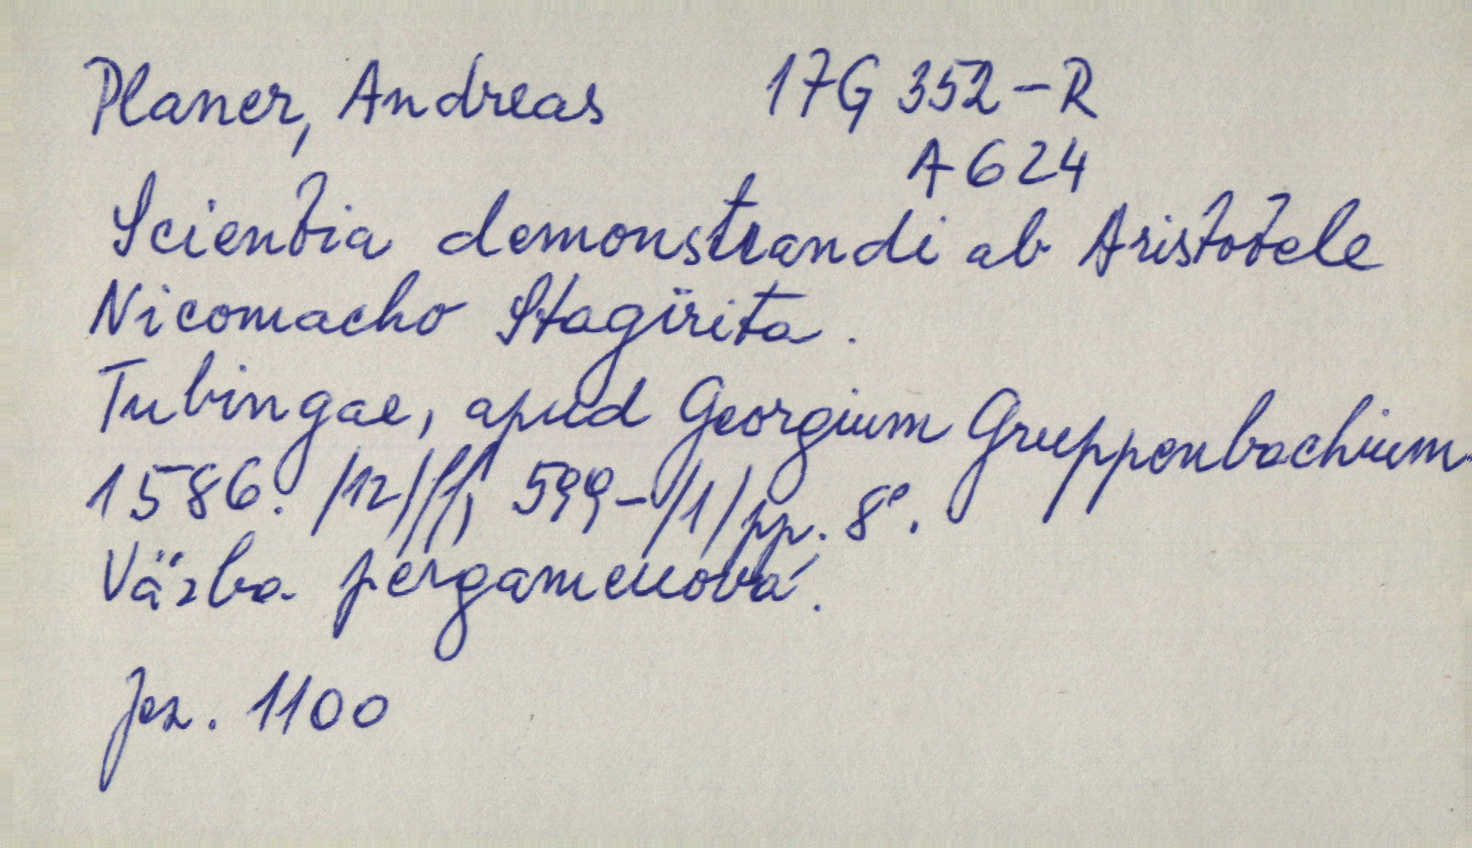 Planer, Andreas 17G 352-R
A 624
Scientia demonstrandi ab Aristotele
Nicomacho Stagïrita.
Tubingae, apud Georgium Gruppenbachium
1586. /12/ff, 599-/1/pp. 8°.
Väzba pergamenová.
Jez. 1100